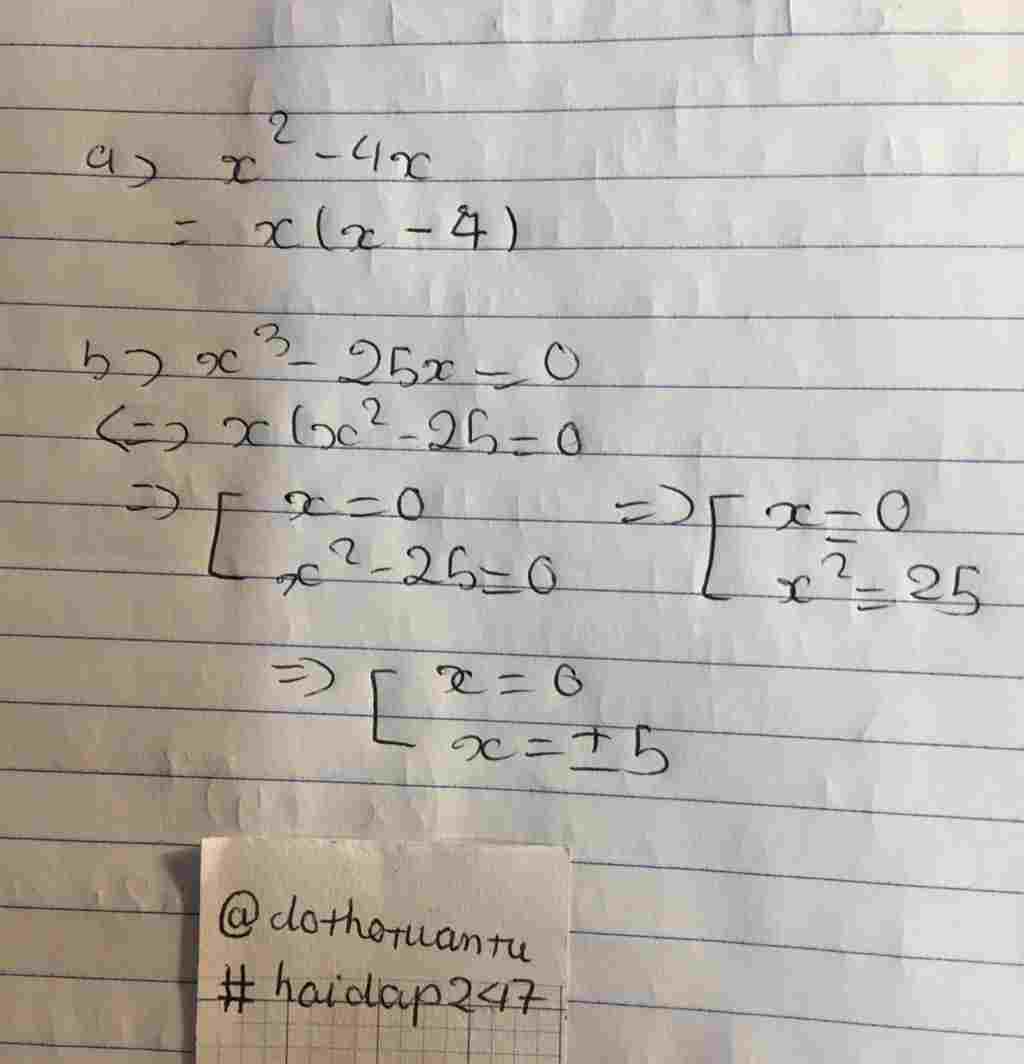 a> x² - 4x
= x(x - 4)
b> x³ - 25x = 0
<=> x(x² - 25 = 0
=> [ x = 0 => [ x = 0
x² - 25 = 0 x² = 25
=> [ x = 0
x = ±5
@dothotuantu
# haidap247